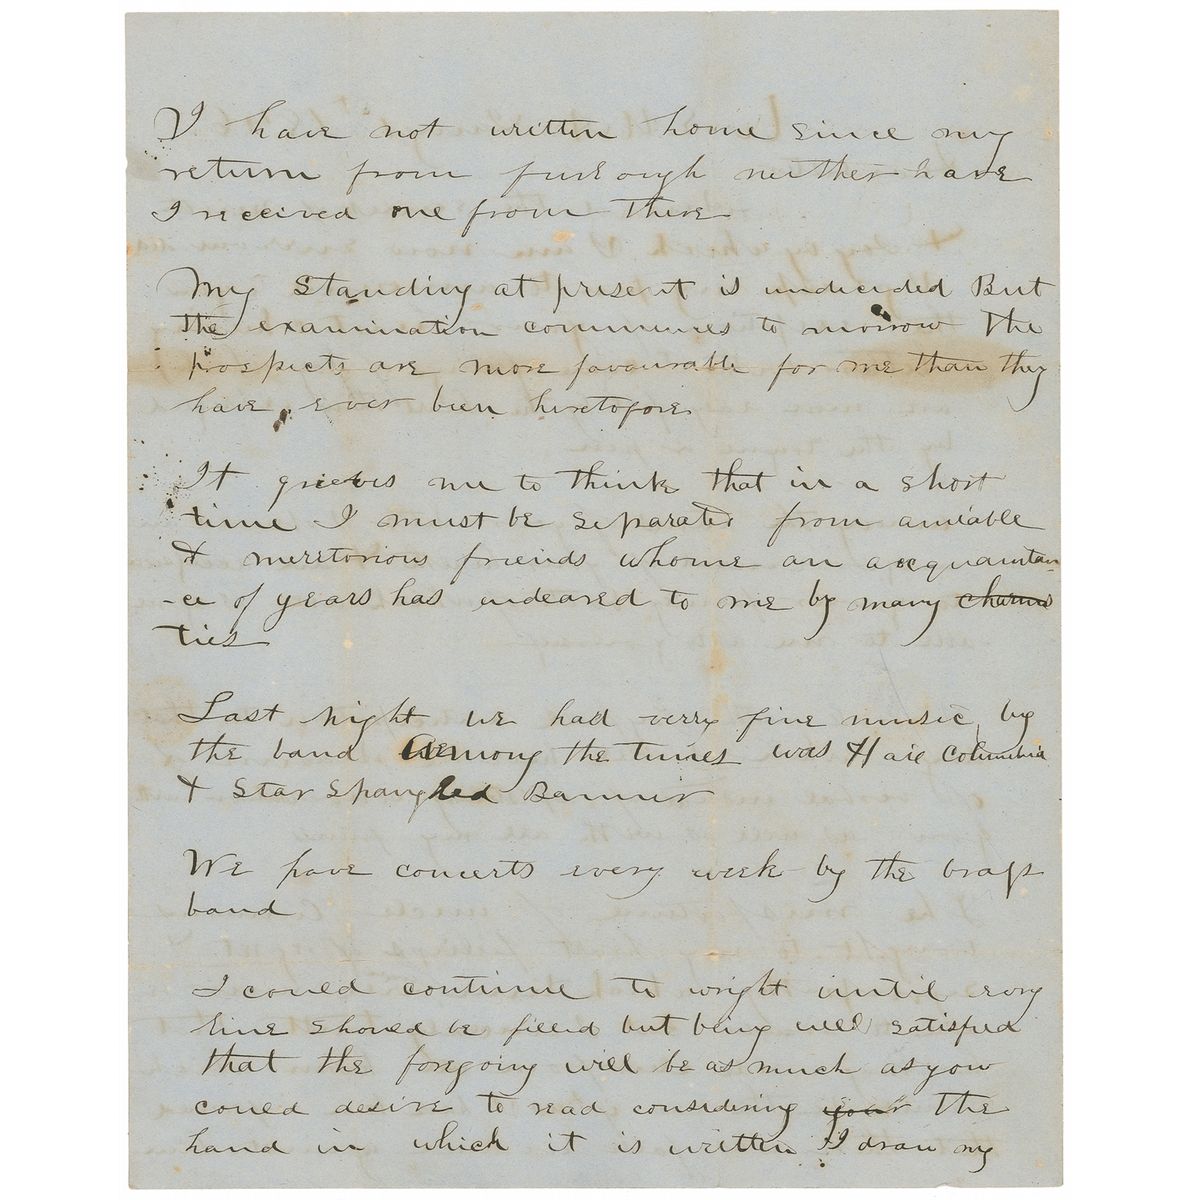 I have not written home since my
return from furlough neither have
I received one from there
My Standing at present is undecided But
the examination commences to morrow The
prospects are more favourable for me than they
have ever been heretofore
It grieves me to think that in a short
time I must be separated from amiable
& meritorious friends whome an acquaintan-
-ce of years has endeared to me by many charms
ties
Last night we had verry fine music by
the band Among the tunes was Hail Columbia
& Star Spangled Banner
We have concerts every week by the brass
band
I could continue to wright until every
line should be filled but being well satisfied
that the foregoing will be as much as you
could desire to read considering your the
hand in which it is written I draw my